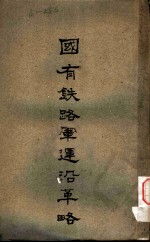 國有鉄路軍運沿革略